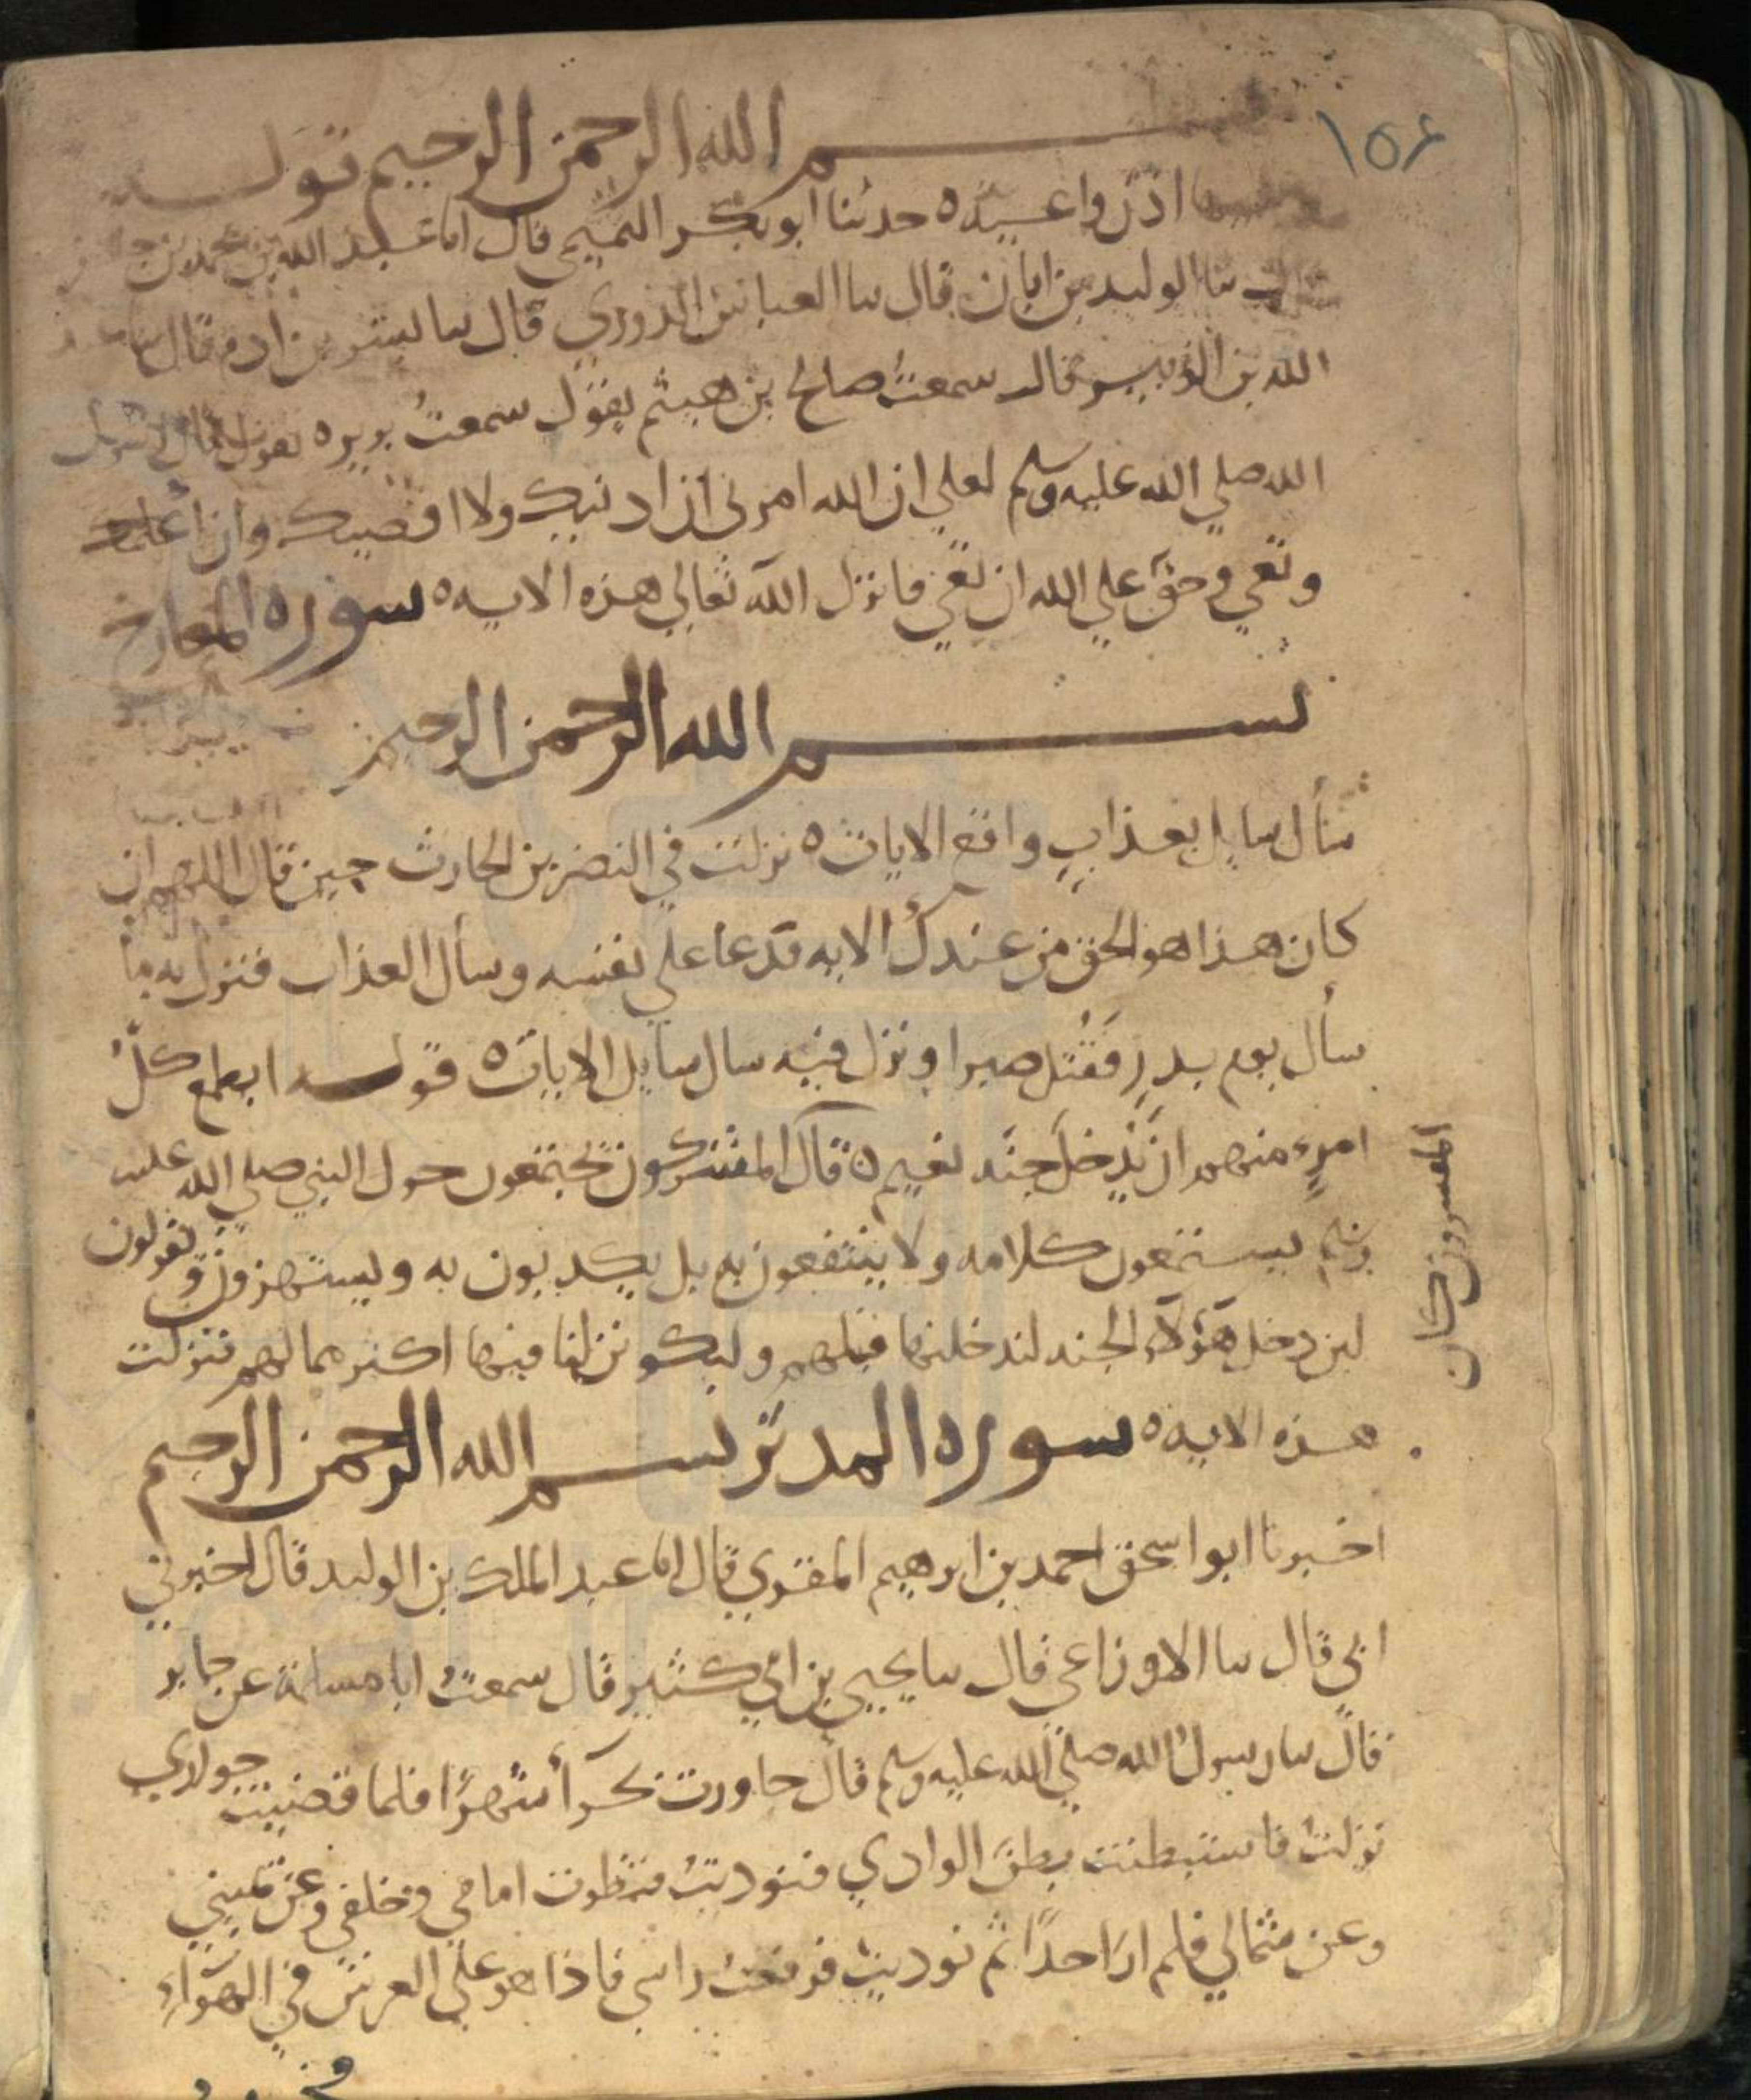 ١٥٤
بسم الله الرحمن الرحيم قوله
اذن واعيه ٥ حدثنا ابو بكر التميمي قال انا عبد الله بن محمد بن
نا الوليد بن ابان قال نا العباس الدوري قال نا بشر بن ادم قال نا
الله بن الزبير قال سمعت صالح بن هيثم يقول سمعت بريره يقول قال رسول
الله صلي الله عليه وسلم لعلي ان الله امرني ان ادنيك ولا اقصيك وان اعلمك
وتعي وحق علي الله ان تعي فانزل الله تعالي هذه الايه ٥ سوره المعارج
بسم الله الرحمن الرحيم
سأل سايل بعذاب واقع الايات ٥ نزلت في النضر بن الحارث حين قال اللهم ان
كان هذا هو الحق من عندك الايه فدعا علي نفسه وسأل العذاب فنزل به ما
سأل يوم بدر فقتل صبرا ونزل فيه سال سايل الايات ٥ قوله ايطمع كل
امرء منهم ان يدخل جنه نعيم ٥ قال المشركون يجتمعون حول النبي صلي الله عليه
وسلم يستمعون كلامه ولا ينتفعون به بل يكذبون به ويستهزون ويقولون
لين دخل هؤلاء الجنه لندخلنها قبلهم وليكونن لنا فيها اكثر مما لهم فنزلت
هذه الايه ٥ سوره المدثر بسم الله الرحمن الرحيم
اخبرنا ابو اسحق احمد بن ابرهيم المقري قال انا عبد الملك بن الوليد قال اخبرني
ابي قال نا الاوزاعي قال نا يحيي بن ابي كثير قال سمعت ابا مسلمة عن جابر
قال نا رسول الله صلي الله عليه وسلم قال جاورت بحرأ شهرا فلما قضيت جواري
نزلت فاستبطنت بطن الوادي فنوديت فنظرت امامي وخلفي وعن يميني
وعن شمالي فلم ار احدا ثم نوديت فرفعت راسي فاذا هو علي العرش في الهواء
المفسرون كان